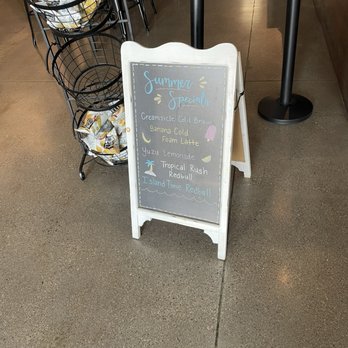 Summer
Specials
Creamsicle Cold Brew
Banana Cold
Foam Latte
Yuzu Lemonade
Tropical Rush
Redbull
Island Time Redbull